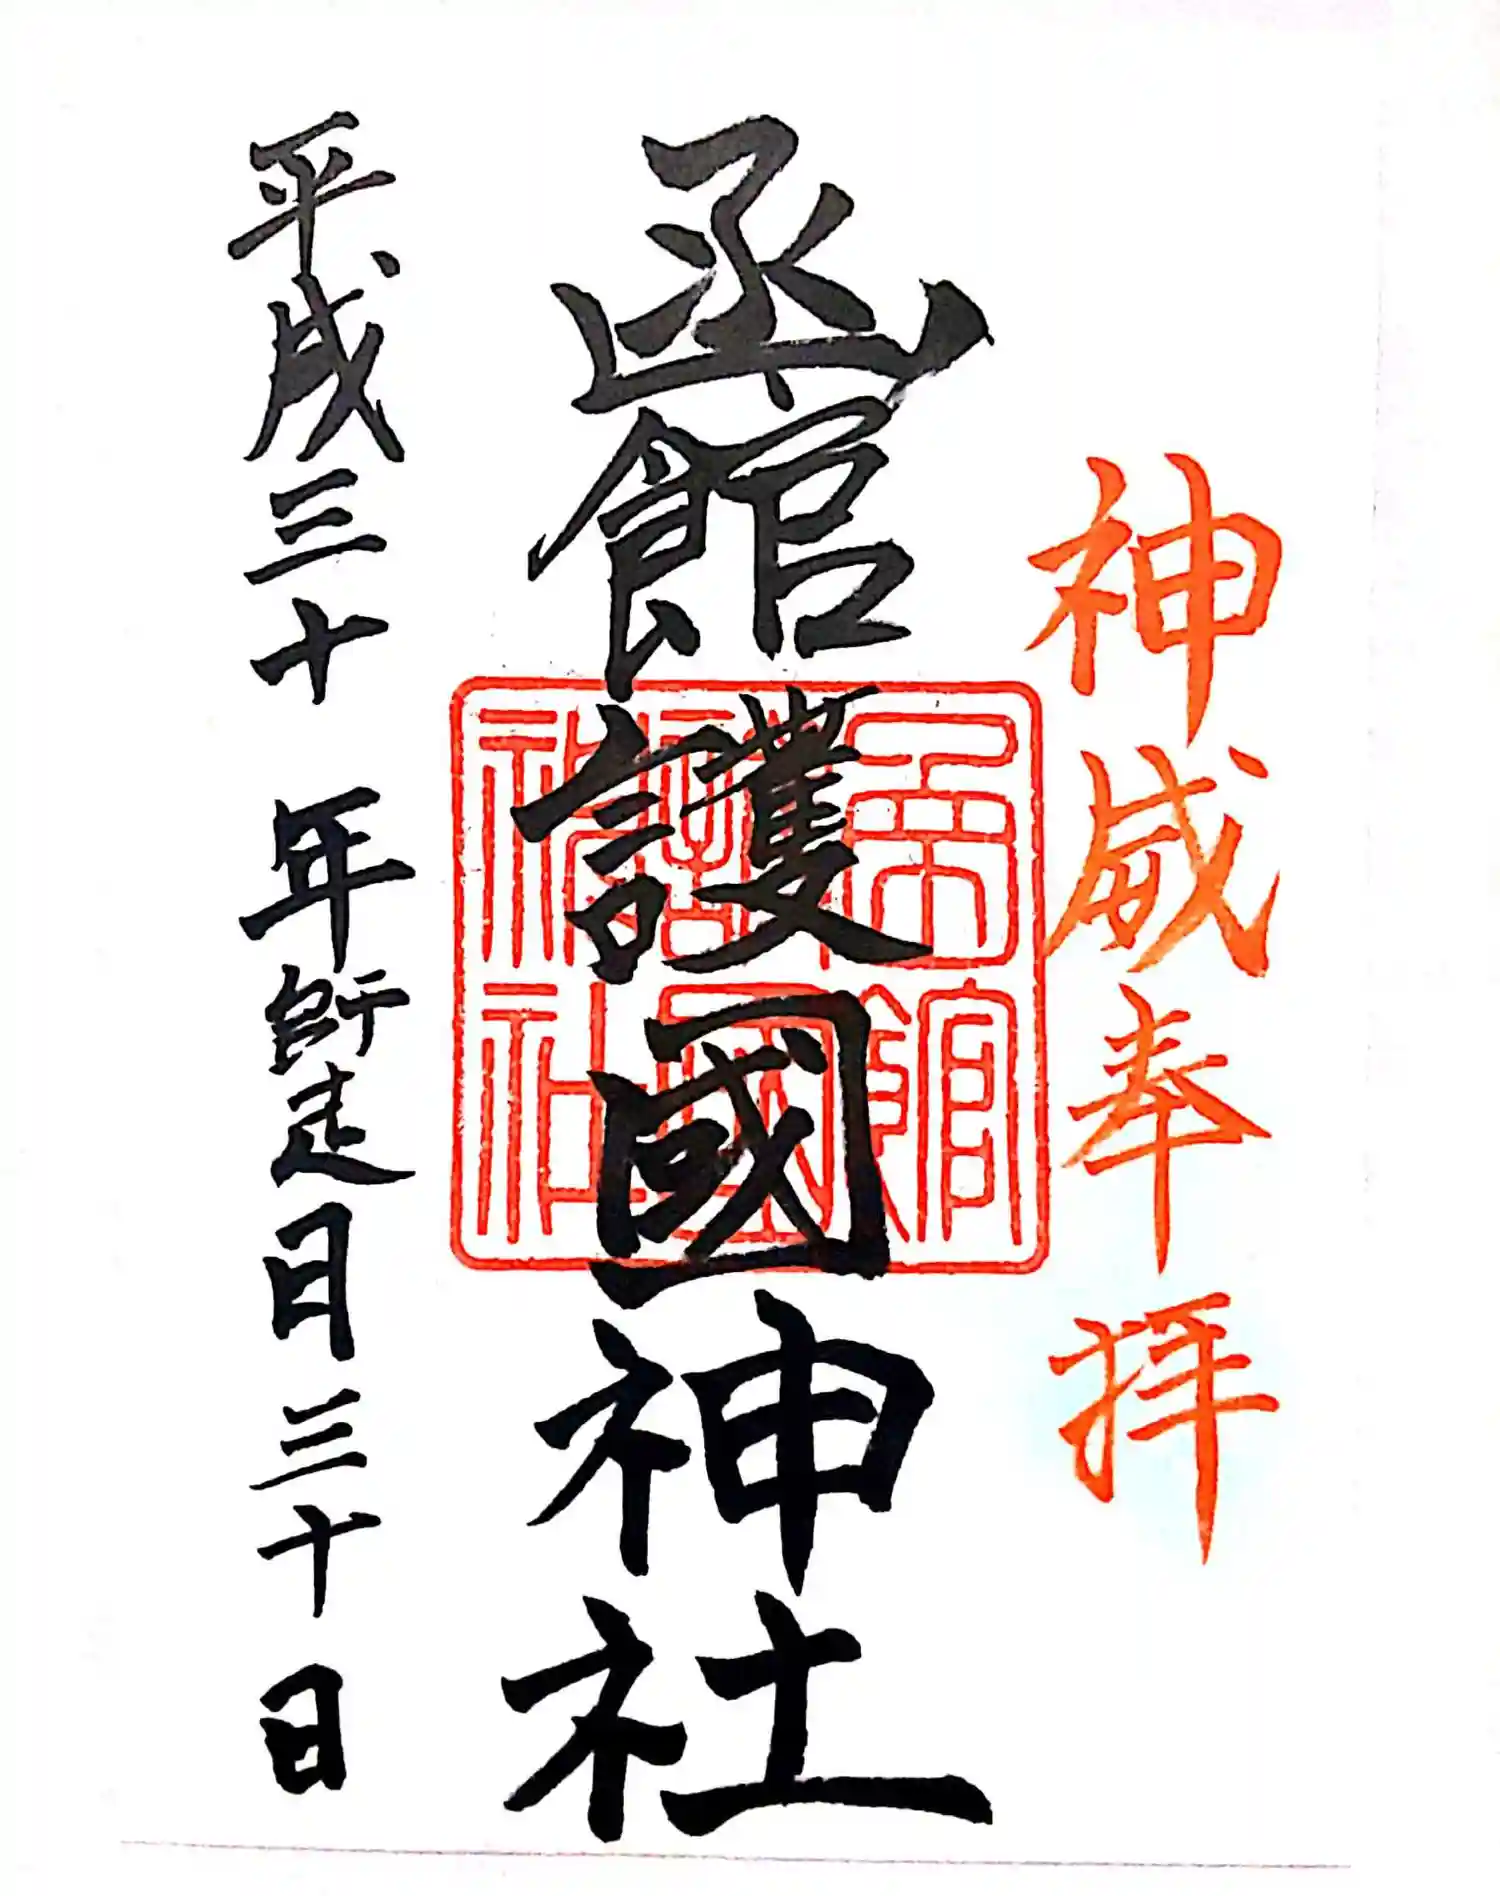 神威奉拝
函館護國神社
函館
護國
神社
平成三十年師走日三十日